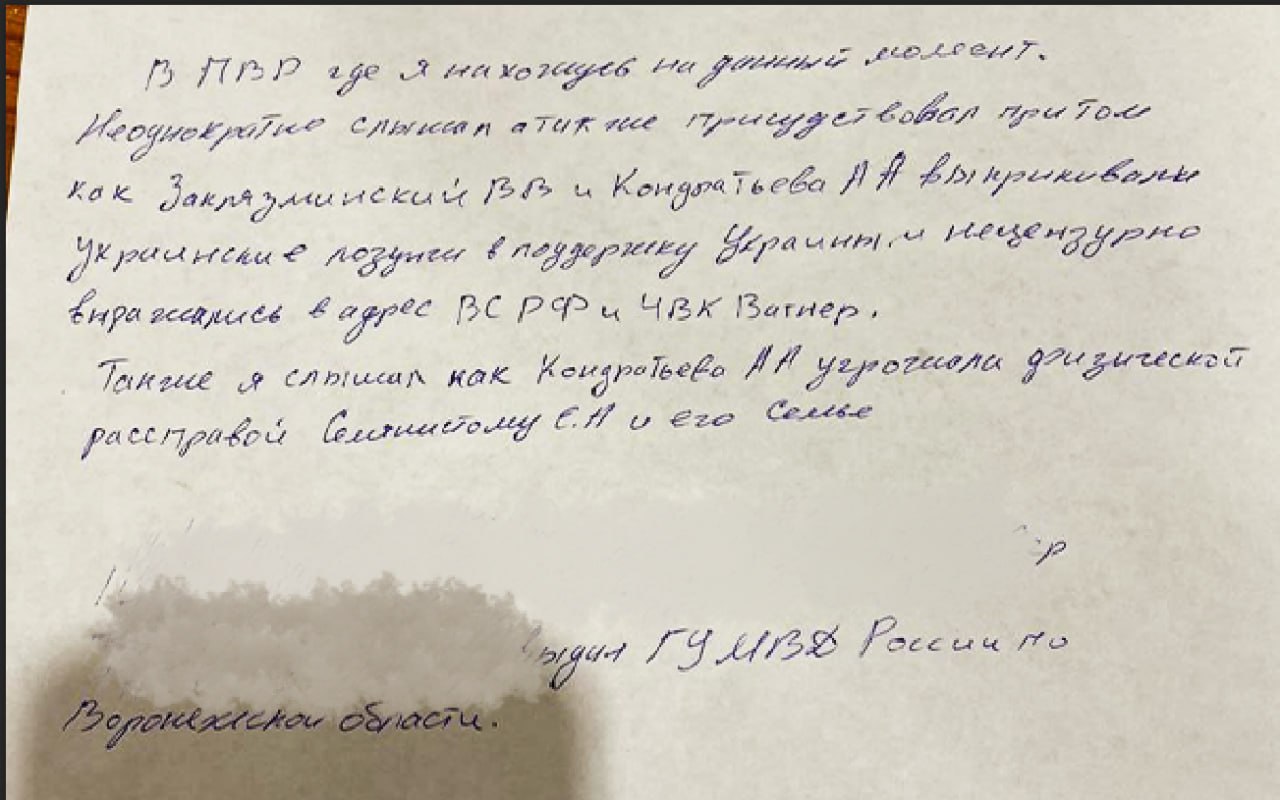 В ПВР где я нахожусь на данный момент.
Неоднократно слышал а также присудствовал при том
как Заклязминский ВВ и Кондратьева АА выкрикивали
украинские лозунги в поддержку Украины, и нецензурно
выражались в адрес ВС РФ и ЧВК Вагнер.
Также я слышал как Кондратьева АА угрожала физической
рассправой Семянистому С.А и его семье
р
ыдан ГУ МВД России по
Воронежской области.